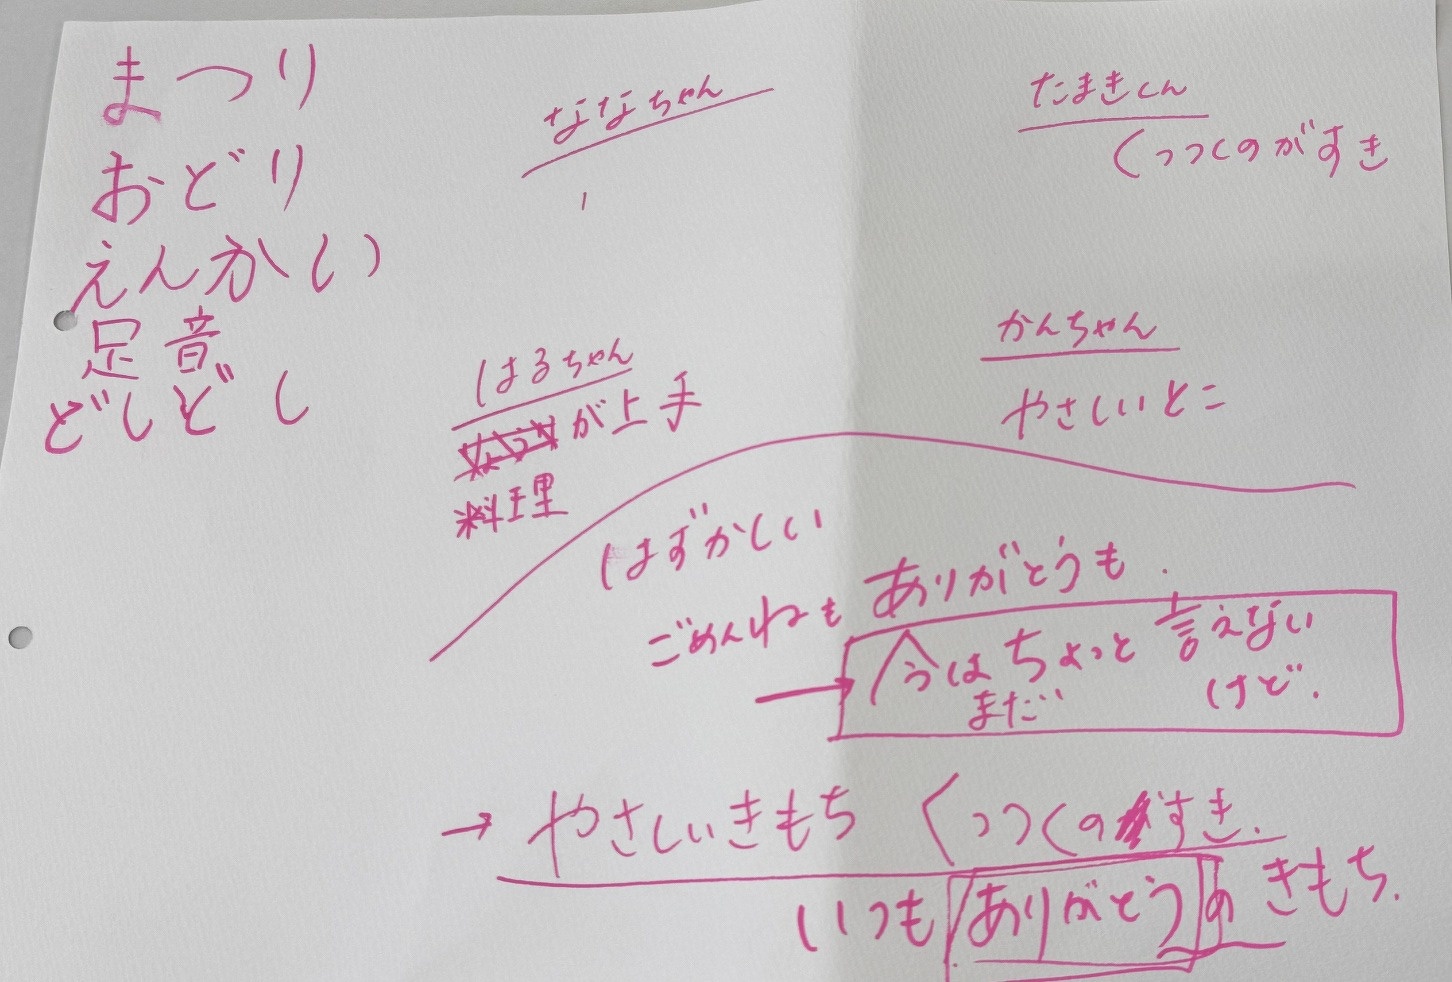 まつり
おどり
えんかい
足音
どしどし
ななちゃん
たまきくん
くっつくのがすき
はるちゃん
が上手
料理
かんちゃん
やさしいとこ
はずかしい
ごめんねも ありがとうも.
今はちょっと言えない
まだ けど.
→ やさしいきもち くっつくのがすき.
いつもありがとうのきもち.